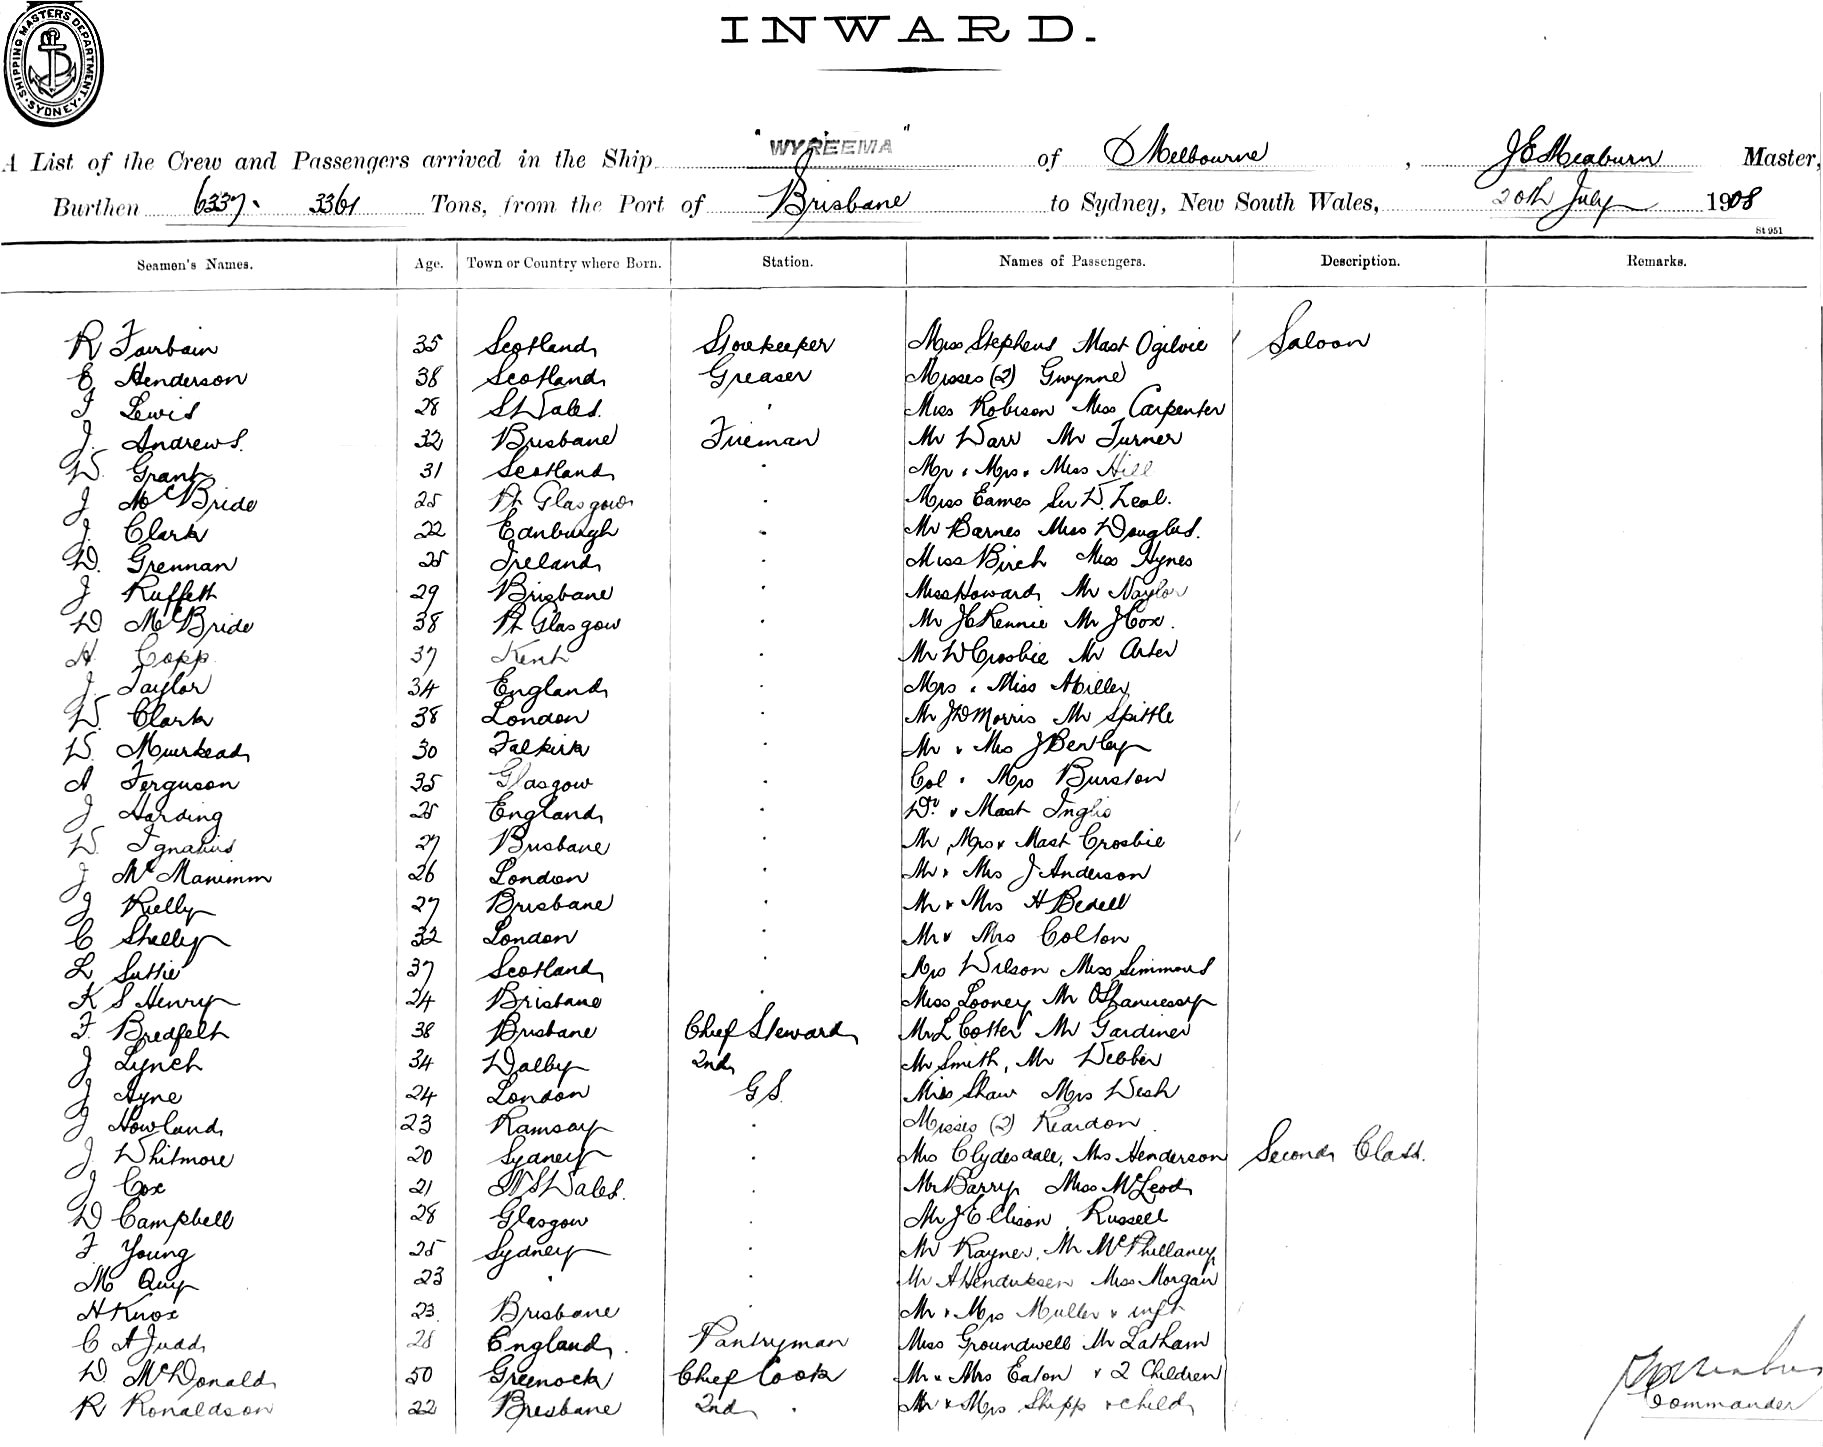 SHIPPING MASTERS DEPARTMENT. SYDNEY
INWARD.
A List of the Crew and Passengers arrived in the Ship "WYREEMA" of Melbourne, J E Meaburn Master,
Burthen 6337. 3361 Tons, from the Port of Brisbane to Sydney, New South Wales, 20th July 1908
St 951
Seamen's Names. Age. Town or Country where Born. Station. Names of Passengers. Description. Remarks.
R Fairbain 35 Scotland Storekeeper Miss Stephens Mast Ogilvie Saloon
E Henderson 38 Scotland Greaser Misses (2) Gwynne
J Lewis 28 S Wales. " Miss Robison Miss Carpenter
J. Andrews. 32 Brisbane Fireman Mr Warr Mr Turner
W. Grant 31 Scotland " Mr & Mrs & Miss Hill
J McBride 25 Pt Glasgow " Miss Eames Sir W. Leal.
J. Clark 22 Edinburgh " Mr Barnes Miss Douglas.
W. Grennan 25 Ireland " Miss Birch Miss Hynes
J Ruffett 29 Brisbane " Miss Howard Mr Naylor
D McBride 38 Pt Glasgow " Mr J C Rennie Mr J Cox.
H Copp 37 Kent " Mr W Crosbie Mr Arter
J. Taylor 34 England " Mrs & Miss Miller
W. Clark 38 London " Mr J W Morris Mr Spittle
W. Muirhead 30 Falkirk " Mr & Mrs J Benley
A Ferguson 35 Glasgow " Col & Mrs Burston
J Harding 25 England " Dr. & Mast Inglis
W. Ignatius 27 Brisbane " Mr, Mrs & Mast Crosbie
J McManimm 26 London " Mr & Mrs J Anderson
J Kielly 27 Brisbane " Mr & Mrs H Bedell
C Shelley 32 London " Mr & Mrs Colton
L Suttie 37 Scotland " Mrs Wilson Miss Simmons
K S Henry 24 Brisbane " Miss Looney Mr O'Shannessy
F. Bredfelt 38 Brisbane Chief Steward Mr L Cotter Mr Gardiner
J Lynch 34 Dalby 2nd Mr Smith, Mr Webber
J Ayne 24 London G.S. Miss Shaw Mrs Wesh
J Howland 23 Ramsay " Misses (2) Reardon
J. Whitmore 20 Sydney " Mrs Clydesdale, Mrs Henderson Second Class.
J Cox 21 N S Wales. " Mr Barry Miss McLeod
D Campbell 28 Glasgow " Mr J Ellison, Russell
F. Young 25 Sydney " Mr Rayner, Mr McPhillaney
M Quy 23 " " Mr A Hendriksen Miss Morgan
H Knox 23 Brisbane " Mr & Mrs Muller & inft
C A Judd 28 England. Pantryman Miss Groundwell Mr Latham
D McDonald 50 Greenock Chief Cook Mr & Mrs Eaton & 2 Children
R Ronaldson 22 Brisbane 2nd " Mr & Mrs Shipp & child
Commander